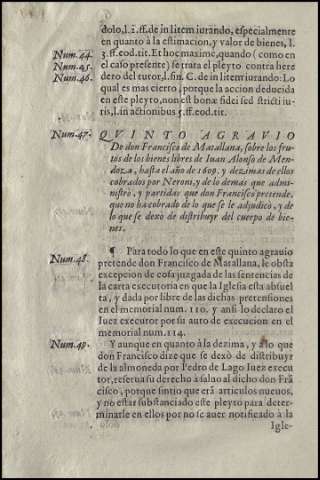 dolo, l. 2. ff. de in litem iurando, especialmente
en quanto à la estimacion, y valor de bienes, l.
Num. 44. 3. ff. eod. tit. Et hoc maxime, quando (como en
Num. 45. el caso presente) se trata el pleyto contra here
Num. 46. dero del tutor, l. fin. C. de in litem iurando: Lo
qual es mas cierto, porque la accion deducida
en este pleyto, non est bonæ fidei sed stricti iu-
ris, l. in actionibus 5. ff. eod. tit.
Num. 47. QVINTO AGRAVIO
De don Francisco de Matallana, sobre los fru-
tos de los bienes libres de Iuan Alonso de Men-
doza, hasta el año de 1609. y dezimas de ellos
cobrados por Neroni, y de lo demas que admi-
nistrò, y partidas que don Francisco pretende,
que no ha cobrado de lo que se le adjudicò, y de
lo que se dexò de distribuyr del cuerpo de bie-
nes.
Num. 48. ¶ Para todo lo que en este quinto agrauio
pretende don Francisco de Matallana, le obsta
excepcion de cosa juzgada de las sentencias de
la carta executoria en que la Iglesia esta absuel
ta, y dada por libre de las dichas pretensiones
en el memorial num. 110. y ansi lo declaro el
Iuez executor por su auto de execucion en el
memorial num. 114.
Num. 49. Y aunque en quanto à la dezima, y a lo que
don Francisco dize que se dexò de distribuyr
de la almoneda por Pedro de Lago Iuez execu
tor, reserua su derecho a saluo al dicho don Frã
cisco, porque sintio que erã articulos nueuos,
y no estar substanciado este pleyto para deter-
minarle en ellos por no se auer notificado à la
Igle-